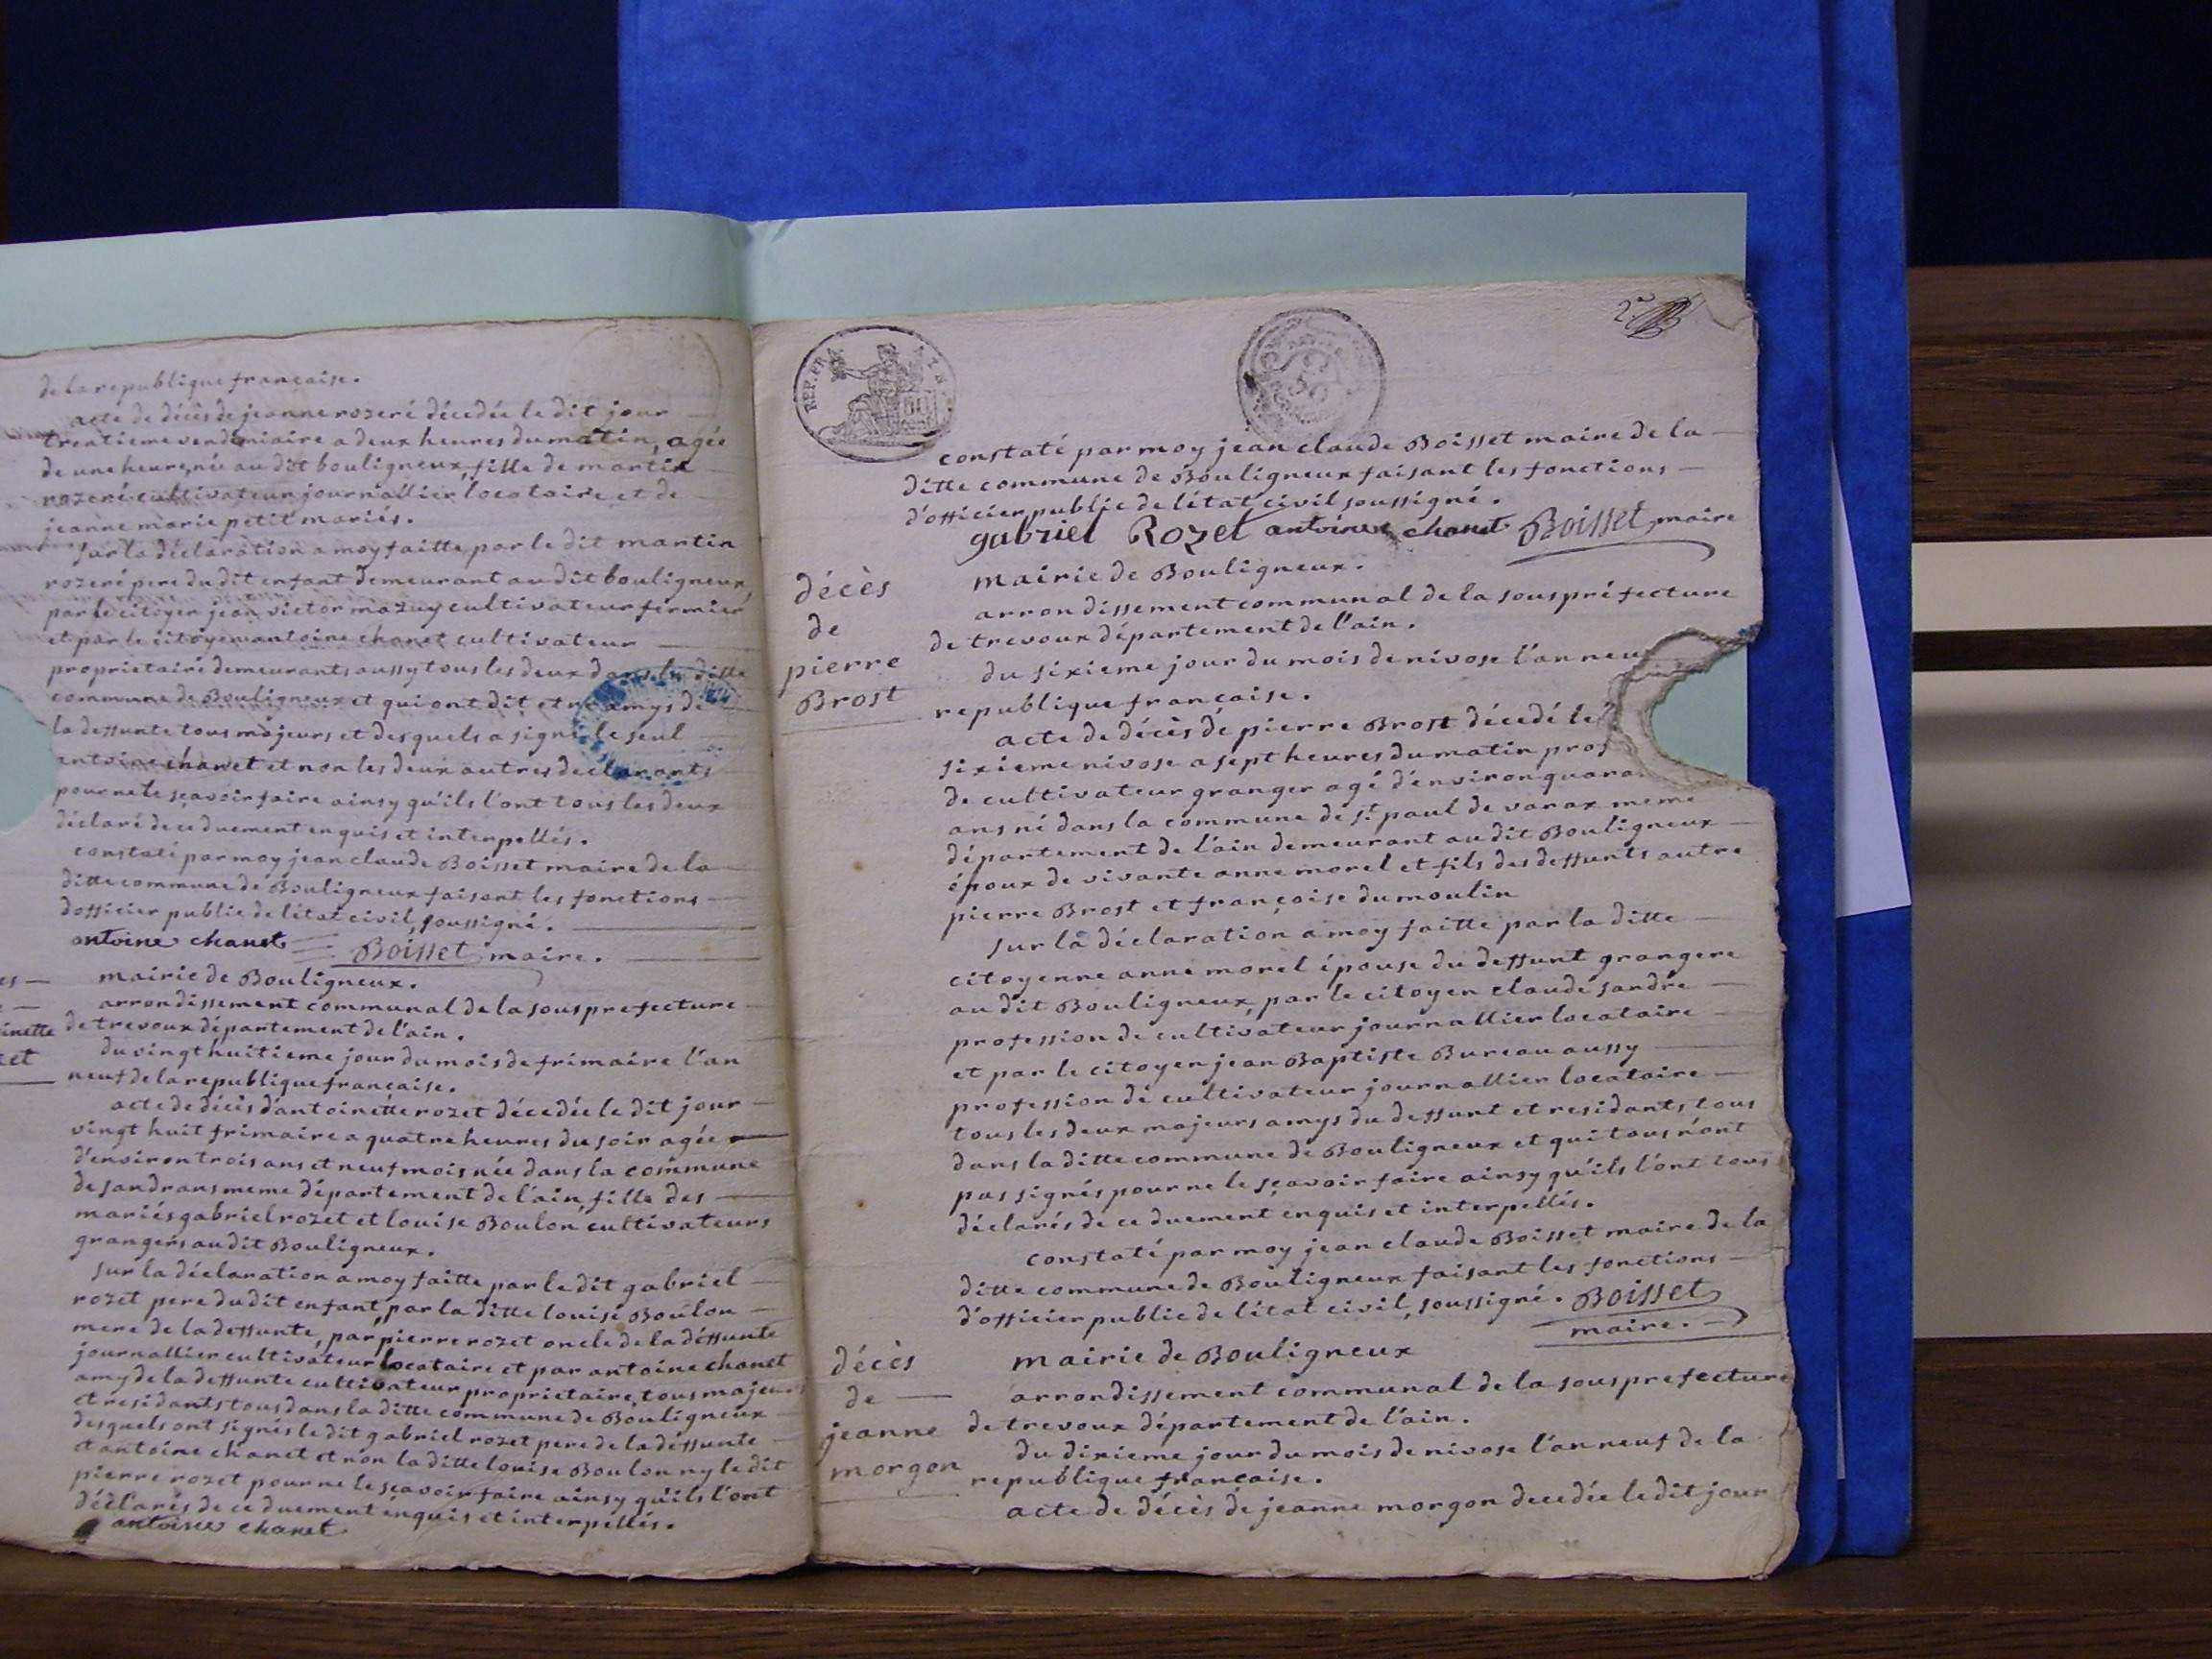 de la republique francaise.
acte de décès de jeanne rozeré décedée le dit jour
trentieme vendemiaire a deux heures du matin, agée
de une heure, née au dit bouligneux, fille de martin
rozeré cultivateur journallier locataire et de
jeanne marie petit mariés.
sur la déclaration a moy faitte par le dit martin
rozeré pere du dit enfant demeurant au dit bouligneux,
par le citoyen jean victor mazuy cultivateur fermier
et par le citoyen antoine chanet cultivateur
proprietaire demeurants aussy tous les deux dans la ditte
commune de Bouligneux et qui ont dit etre amys de
la deffunte tous majeurs et desquels a signé le seul
antoine chanet et non les deux autres declarants
pour ne le sçavoir faire ainsy qu'ils l'ont tous les deux
déclaré de ce duement enquis et interpellés.
constaté par moy jean claude Boisset maire de la
ditte commune de Bouligneux faisant les fonctions
d'officier public de l'état civil, soussigné.
antoine chanet Boisset maire.
mairie de Bouligneux.
arrondissement communal de la sous prefecture
inette de trevoux département de l'ain.
du vingt huitieme jour du mois de frimaire l'an
neuf de la republique francaise.
acte de décès d'antoinette rozet décedée le dit jour
vingt huit frimaire a quatre heures du soir agée
d'environ trois ans et neuf mois née dans la commune
de sandrans meme département de l'ain, fille des
mariés gabriel rozet et louise Boulon, cultivateurs
grangers au dit Bouligneux.
sur la déclaration a moy faitte par le dit gabriel
rozet pere du dit enfant, par la ditte louise Boulon
mere de la deffunte, par pierre rozet oncle de la déffunte
journallier cultivateur locataire et par antoine chanet
amy de la deffunte cultivateur proprietaire, tous majeurs
et residants tous dans la ditte commune de Bouligneux
desquels ont signés le dit gabriel rozet pere de la déffunte
et antoine chanet et non la ditte louise Boulon ny le dit
pierre rozet pour ne le sçavoir faire ainsy qu'ils l'ont
déclarés de ce duement enquis et interpellés.
antoine chanet
REP. FRA
2e
constaté par moy jean claude Boisset maire de la
ditte commune de Bouligneux faisant les fonctions
d'officier public de l'état civil soussigné.
gabriel Rozet antoine chanet Boisset, maire
décès
de
pierre
Brost
mairie de Bouligneux.
arrondissement communal de la sous préfecture
de trevoux département de l'ain.
du sixieme jour du mois de nivose l'an neu
republique française.
acte de décès de pierre Brost décedé le
sixieme nivose a sept heures du matin prof
de cultivateur granger agé d'environ quara
ans né dans la commune de st paul de varax meme
département de l'ain demeurant au dit Bouligneux
époux de vivante anne morel et fils des deffunts autre
pierre Brost et françoise dumoulin
sur la déclaration a moy faitte par la ditte
citoyenne anne morel épouse du deffunt grangere
au dit Bouligneux, par le citoyen claude sandre
profession de cultivateur journallier locataire
et par le citoyen jean Baptiste Bureau aussy
profession de cultivateur journallier locataire
tous les deux majeurs amys du deffunt et residants, tous
dans la ditte commune de Bouligneux et qui tous n'ont
pas signés pour ne le sçavoir faire ainsy qu'ils l'ont tous
déclarés de ce duement enquis et interpellés.
constaté par moy jean claude Boisset maire de la
ditte commune de Bouligneux faisant les fonctions
d'officier public de l'état civil, soussigné. Boisset
maire.
décès
de
jeanne
morgon
mairie de Bouligneux
arrondissement communal de la sous prefecture
de trevoux département de l'ain.
du dixieme jour du mois de nivose l'an neuf de la
republique francaise.
acte de décès de jeanne morgon decedée le dit jour